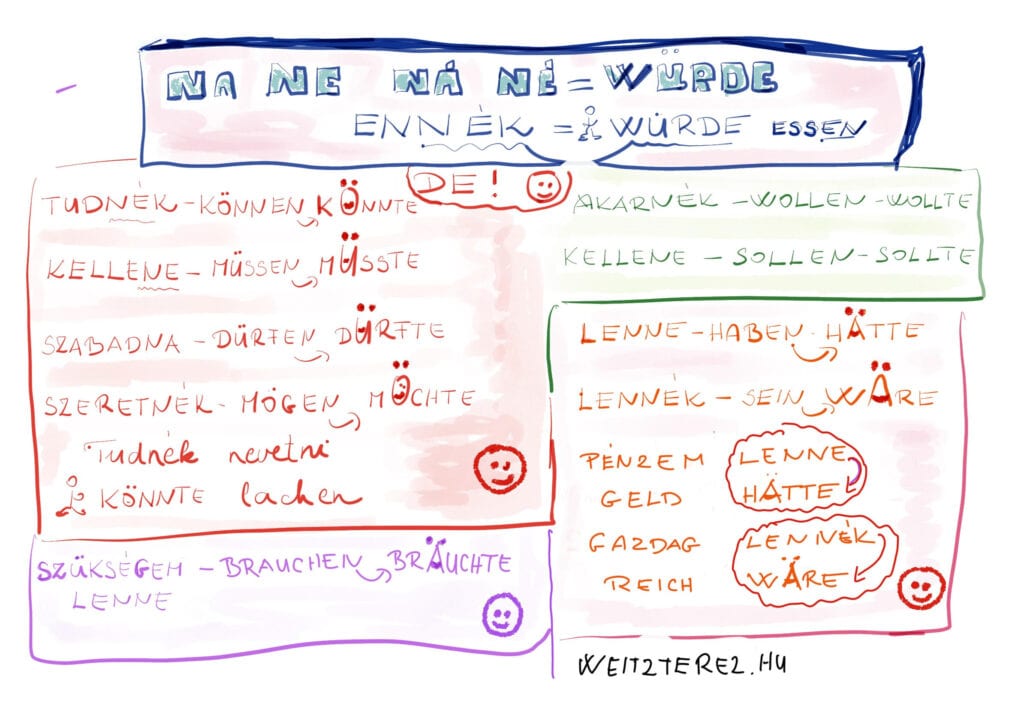 NA NE NÁ NÉ = WÜRDE
ENNÉK = WÜRDE ESSEN
DE!
TUDNÉK - KÖNNEN KÖNNTE
KELLENE - MÜSSEN MÜSSTE
SZABADNA - DÜRFEN DÜRFTE
SZERETNÉK - MÖGEN MÖCHTE
Tudnék nevetni
KÖNNTE lachen
SZÜKSÉGEM - BRAUCHEN BRÄUCHTE
LENNE
AKARNÉK - WOLLEN - WOLLTE
KELLENE - SOLLEN - SOLLTE
LENNE - HABEN - HÄTTE
LENNÉK - SEIN WÄRE
PÉNZEM LENNE
GELD HÄTTE
GAZDAG LENNÉK
REICH WÄRE
WEITZTEREZ.HU